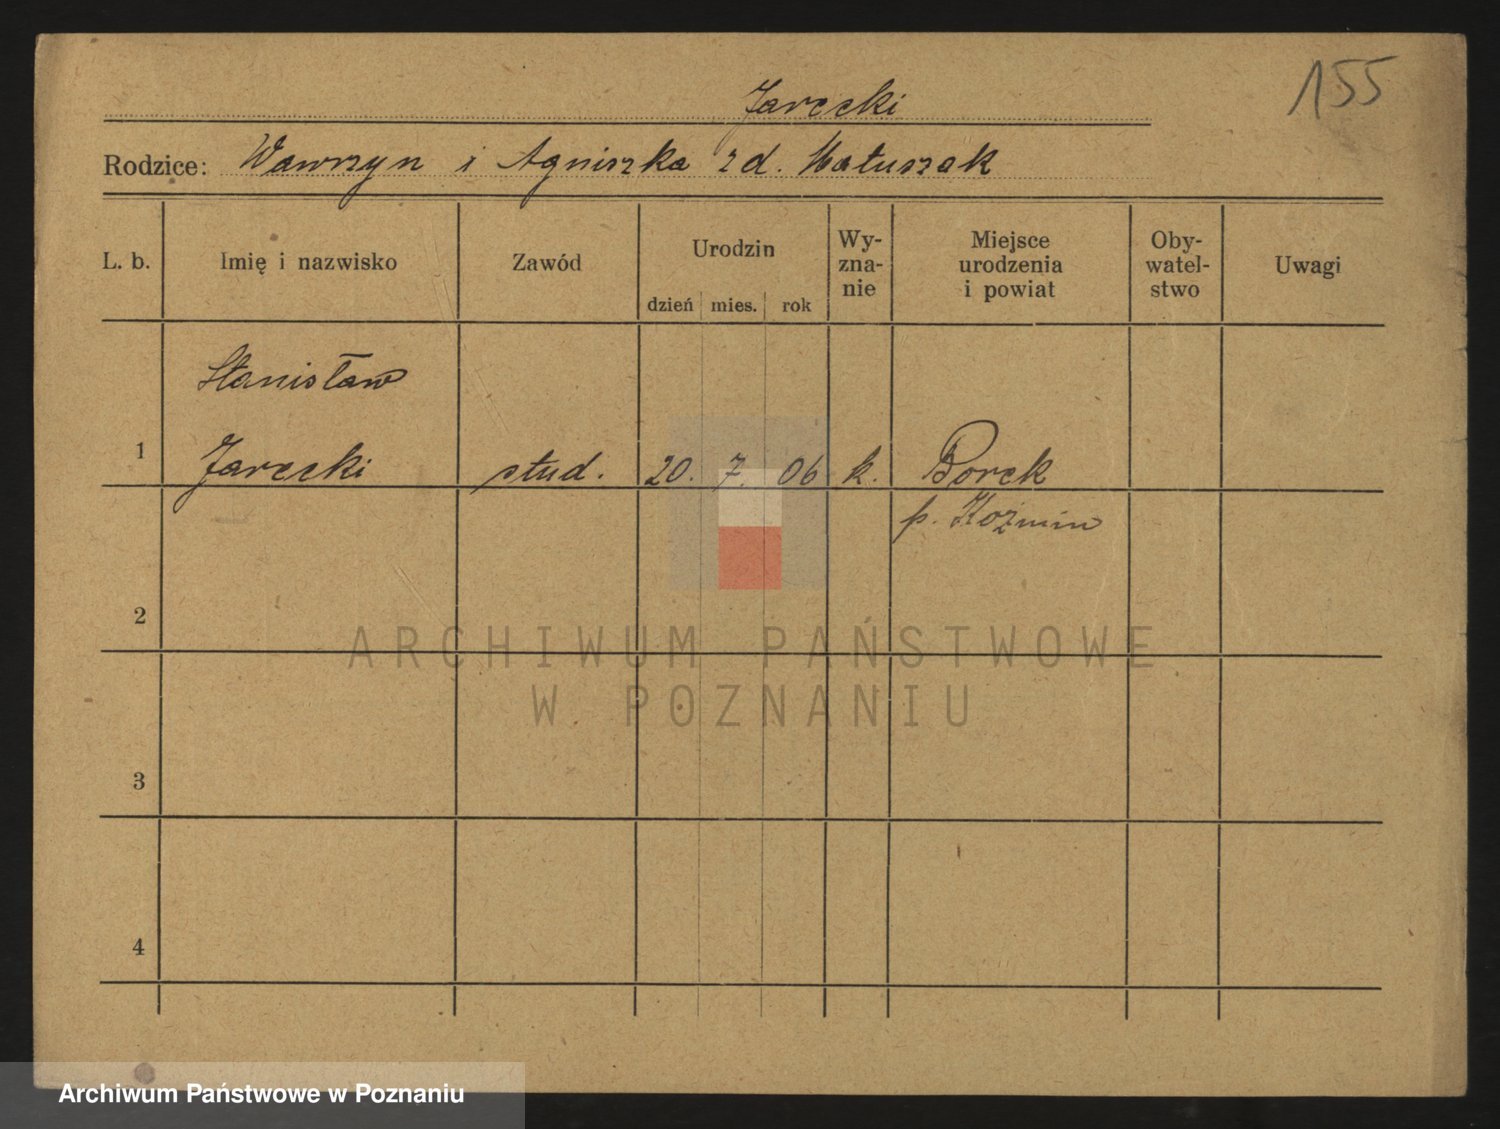 155
Jarecki
Rodzice: Wawrzyn i Agniszka zd. Matuszak
L. b. Imię i nazwisko Zawód Urodzin dzień mies. rok Wy-zna-nie Miejsce urodzenia i powiat Oby-watel-stwo Uwagi
Stanisław
1 Jarecki stud. 20. 7. 06 k. Borek
p. Koźmin
2
3
4
ARCHIWUM PAŃSTWOWE
W POZNANIU
Archiwum Państwowe w Poznaniu